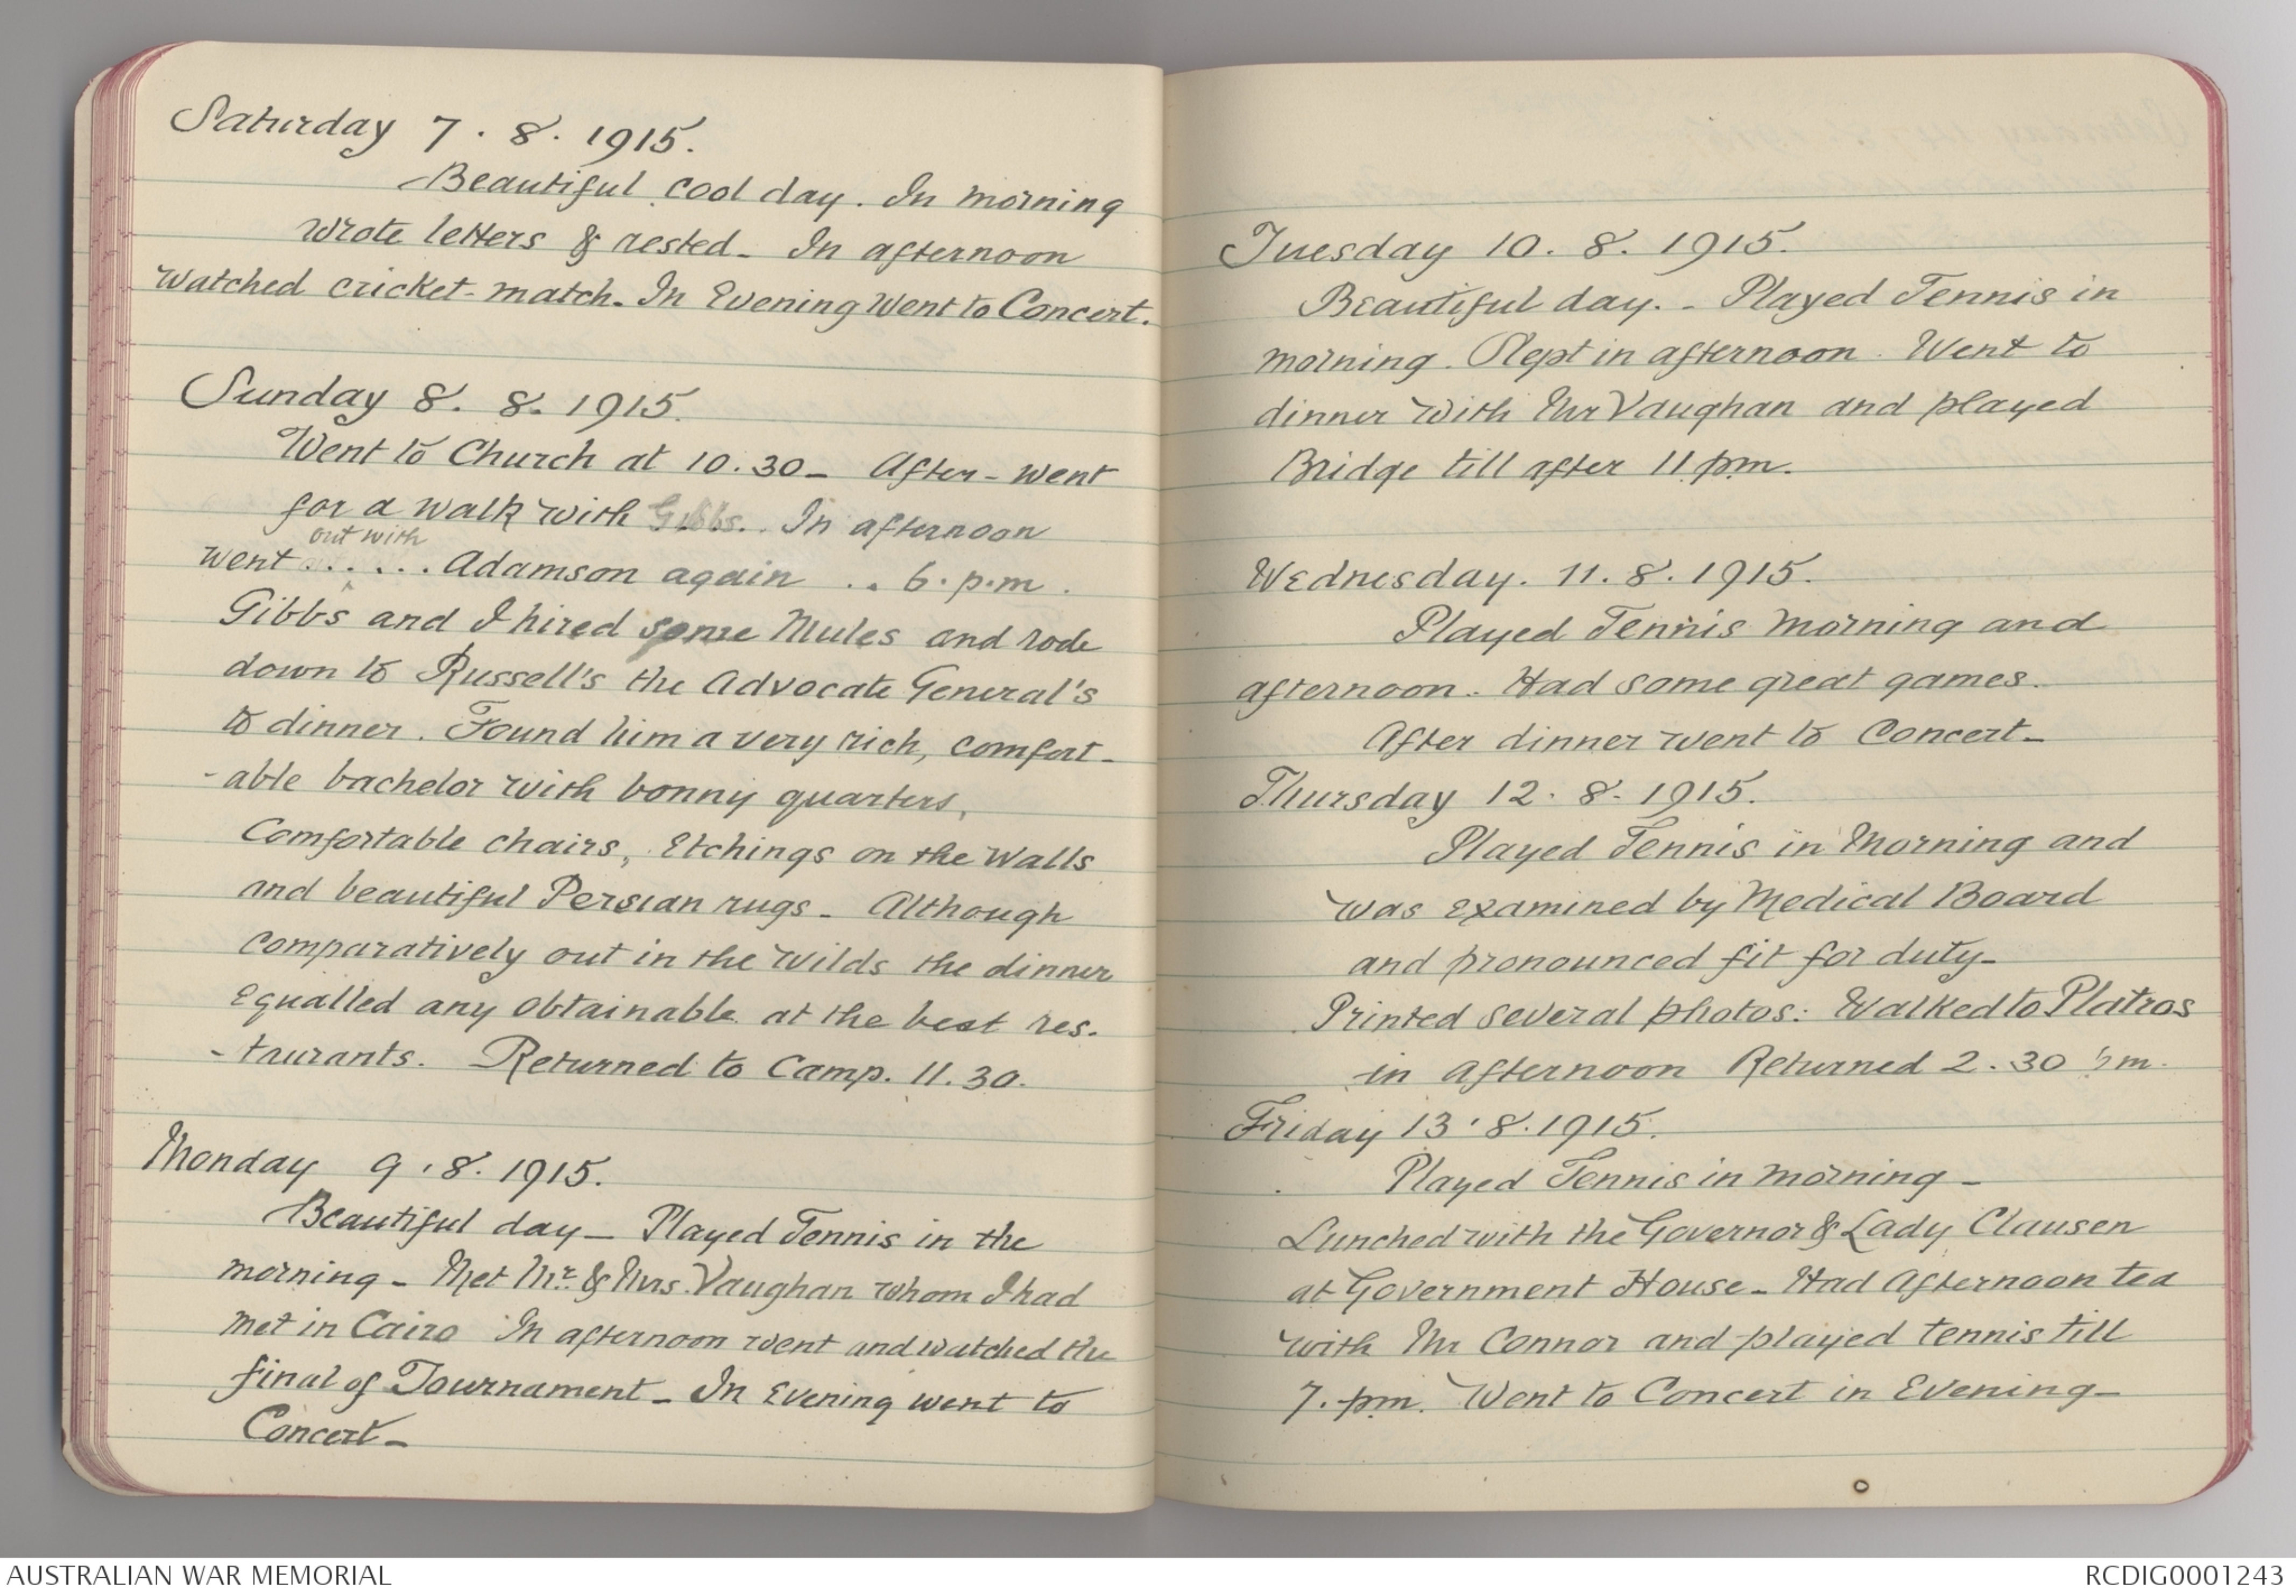 Saturday 7. 8. 1915.
Beautiful cool day. In morning
wrote letters & rested - In afternoon
watched cricket-match. In Evening Went to Concert.
Sunday 8. 8. 1915.
Went to Church at 10.30 - After - went
for a walk with Gibbs. In afternoon
out with
went ..... Adamson again .. 6.p.m.
Gibbs and I hired some Mules and rode
down to Russell's the Advocate General's
to dinner. Found him a very rich, comfort-
-able bachelor with bonny quarters,
Comfortable chairs, Etchings on the Walls
and beautiful Persian rugs - Although
comparatively out in the wilds the dinner
Equalled any obtainable at the best res.
-taurants. Returned to Camp. 11.30.
Monday 9.8.1915.
Beautiful day - Played Tennis in the
morning - Met Mr. & Mrs. Vaughan whom I had
met in Cairo In afternoon went and watched the
final of Tournament - In Evening went to
Concert -
Tuesday 10. 8. 1915.
Beautiful day. - Played Tennis in
morning. Slept in afternoon. Went to
dinner with Mr Vaughan and played
Bridge till after 11 pm.
Wednesday. 11. 8. 1915.
Played Tennis morning and
afternoon. Had some great games.
After dinner went to Concert -
Thursday 12. 8. 1915.
Played Tennis in Morning and
was examined by Medical Board
and pronounced fit for duty -
Printed several photos: Walked to Platros
in afternoon Returned 2.30 pm.
Friday 13.8.1915.
Played Tennis in morning -
Lunched with the Governor & Lady Clausen
at Government House - Had Afternoon tea
with Mr Connor and played tennis till
7.pm. Went to Concert in Evening -
AUSTRALIAN WAR MEMORIAL
RCDIG0001243